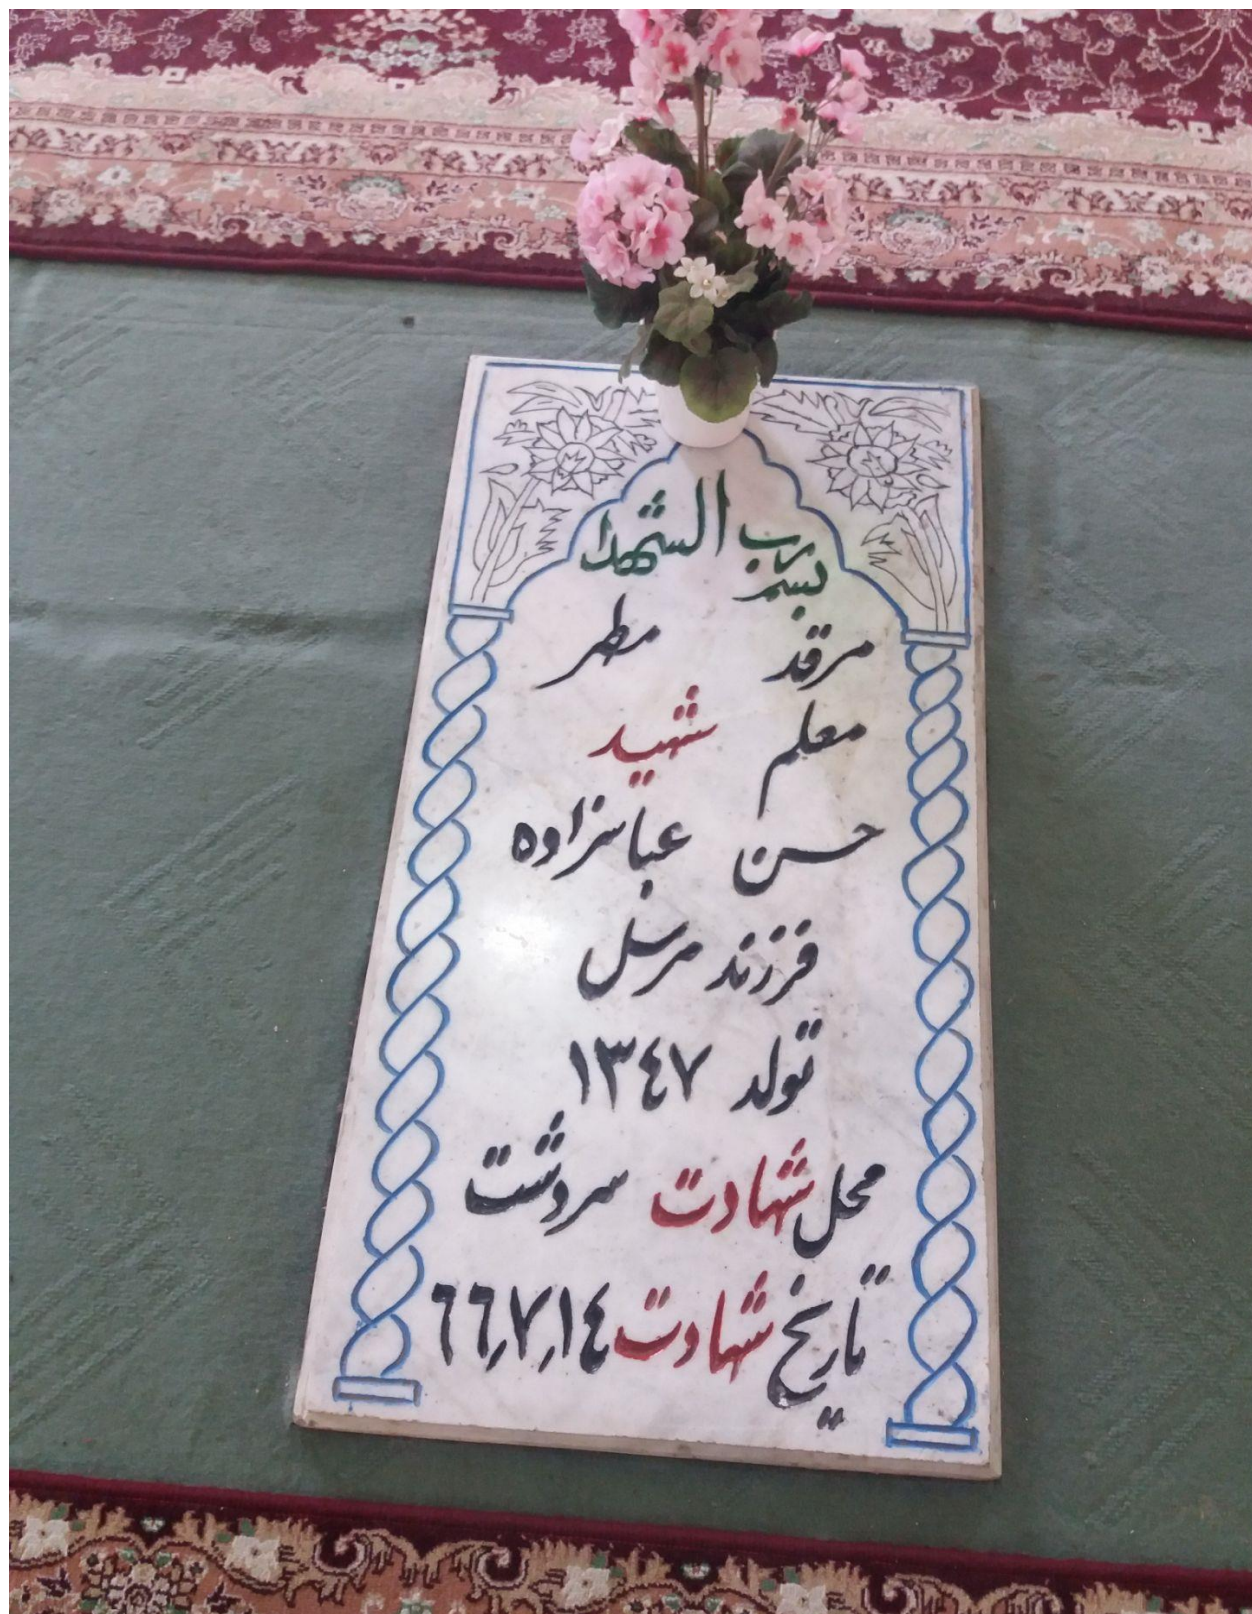 بسم رب الشهدا
مرقد مطهر
معلم شهید
حسن عباسزاده
فرزند مرسل
تولد ۱۳٤۷
محل شهادت سردشت
تاریخ شهادت ٦٦٫۷٫۱٤